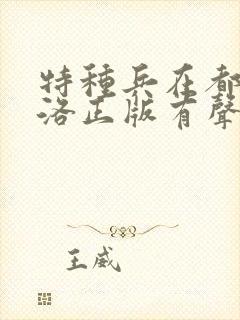 特種兵在都
洛正版有聲
王威